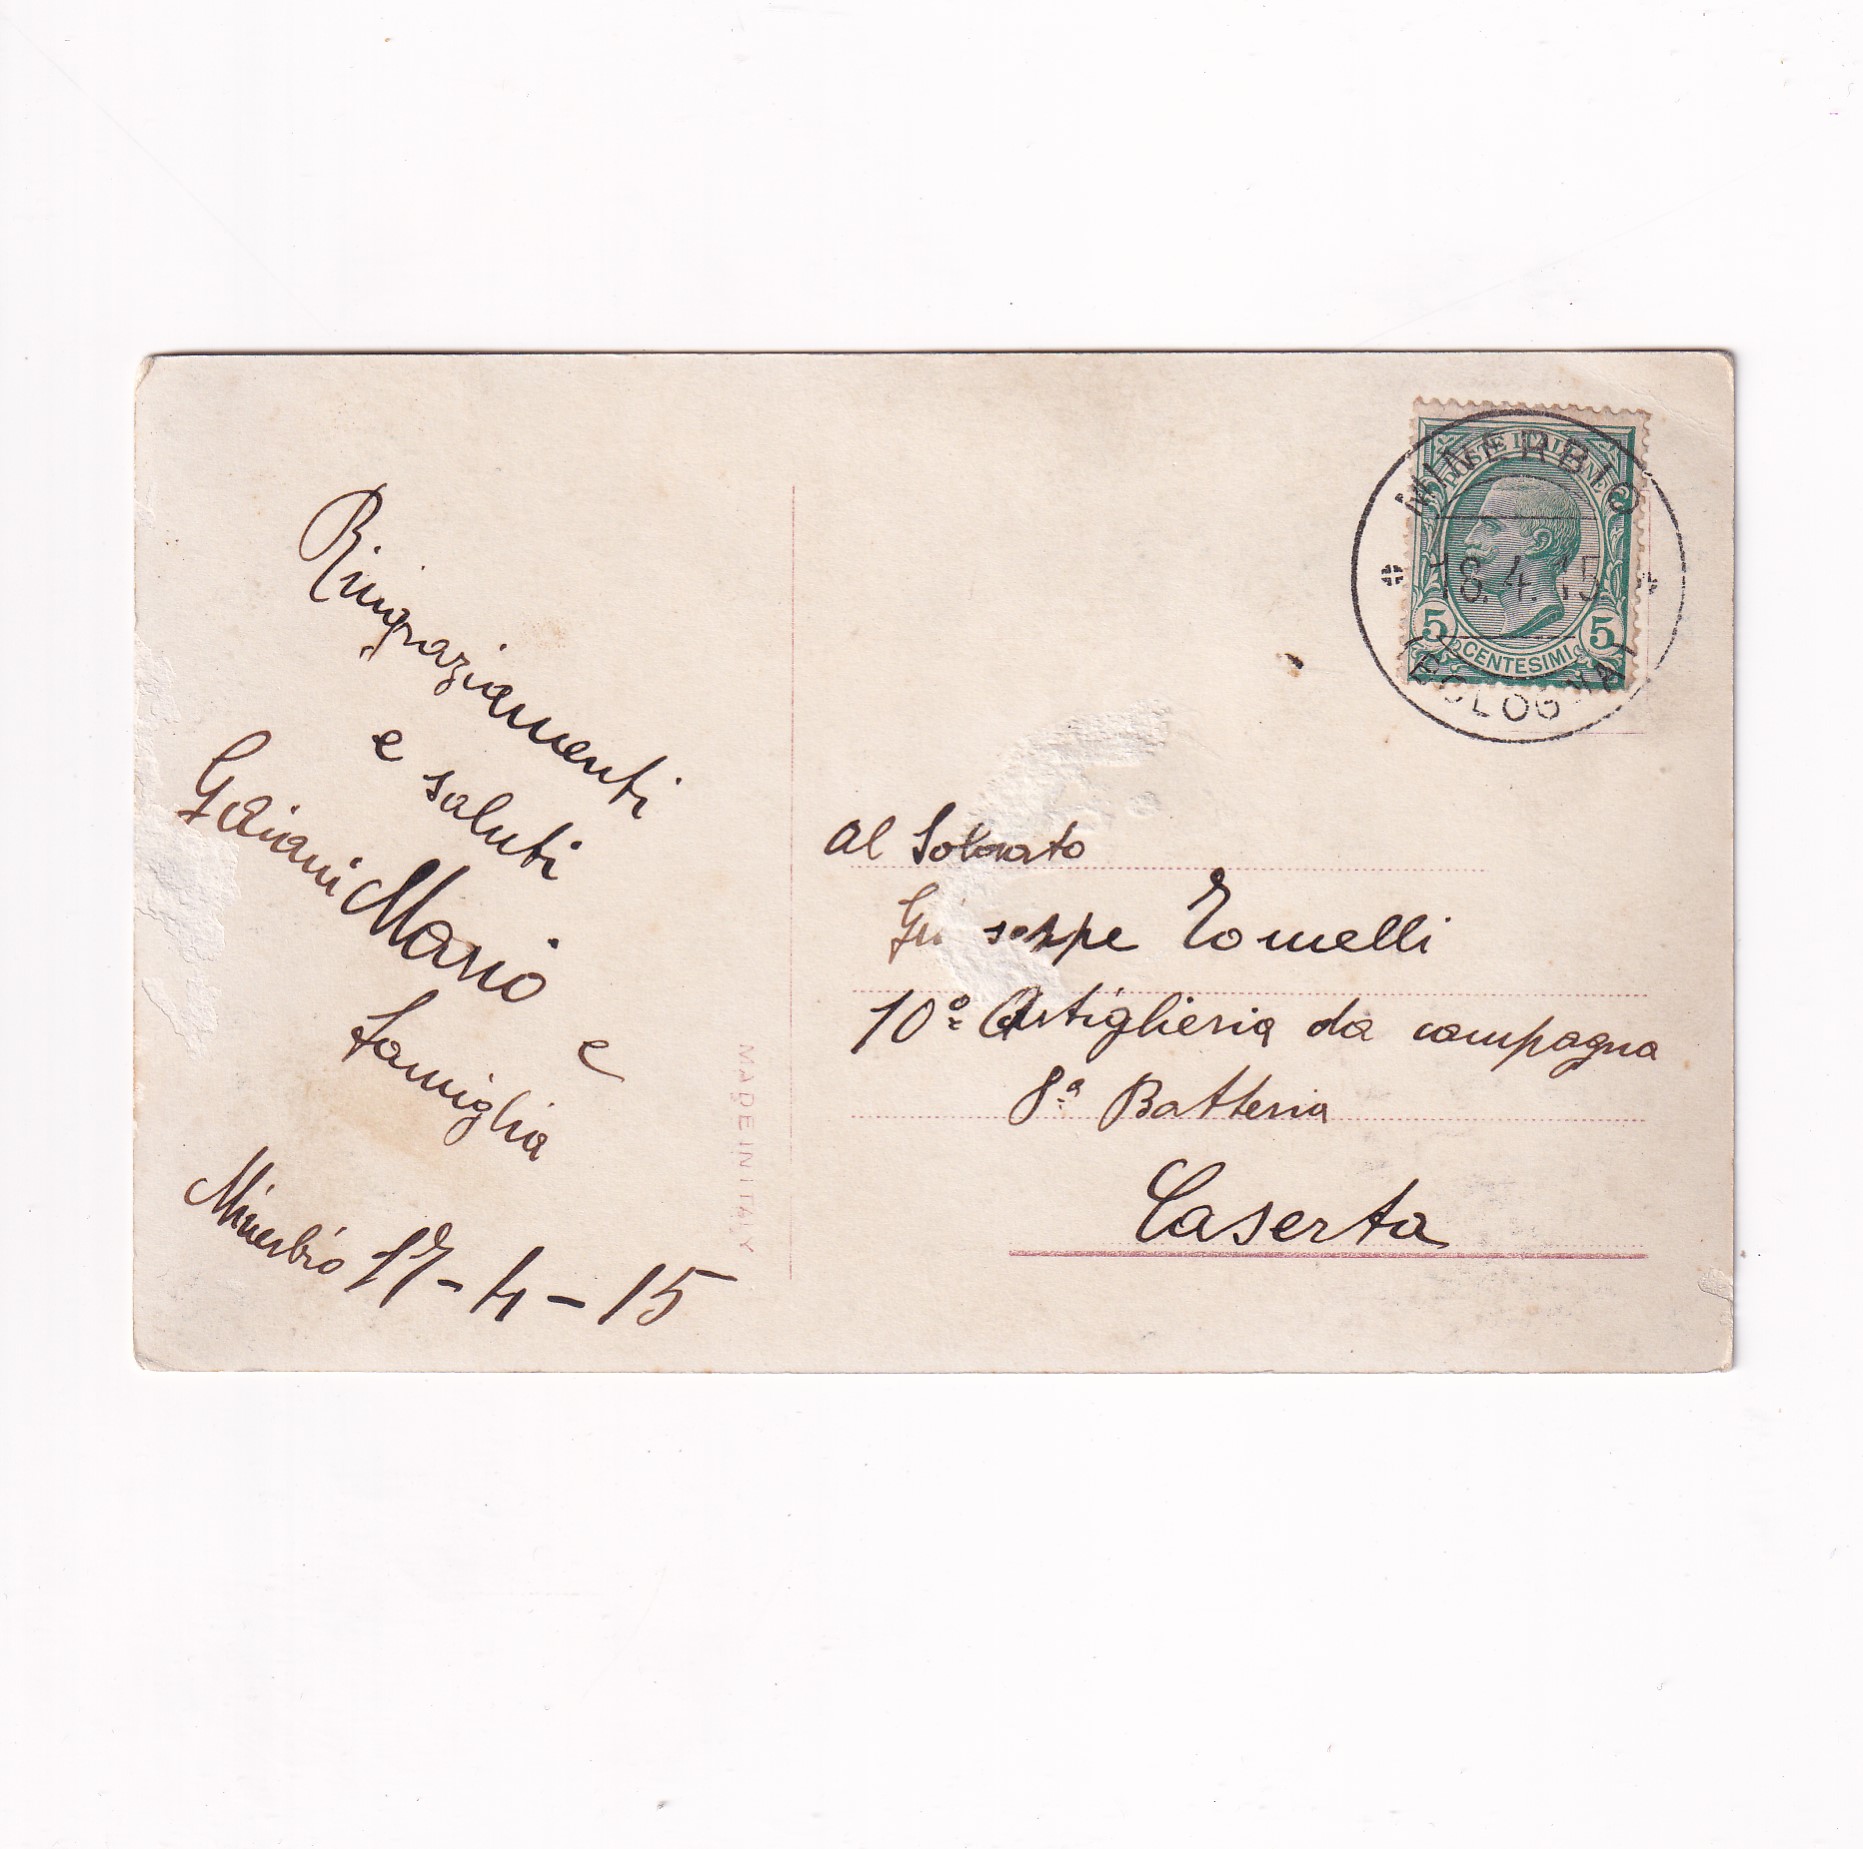 Ringraziamenti
e saluti
Gaiani Mario
e
famiglia
Minerbio 17-4-15
MADE IN ITALY
POSTE ITALIANE
5 CENTESIMI 5
MINERBIO
18.4.15
(BOLOGNA)
Al Soldato
Giuseppe Tomelli
10ª Artiglieria da campagna
8ª Batteria
Caserta